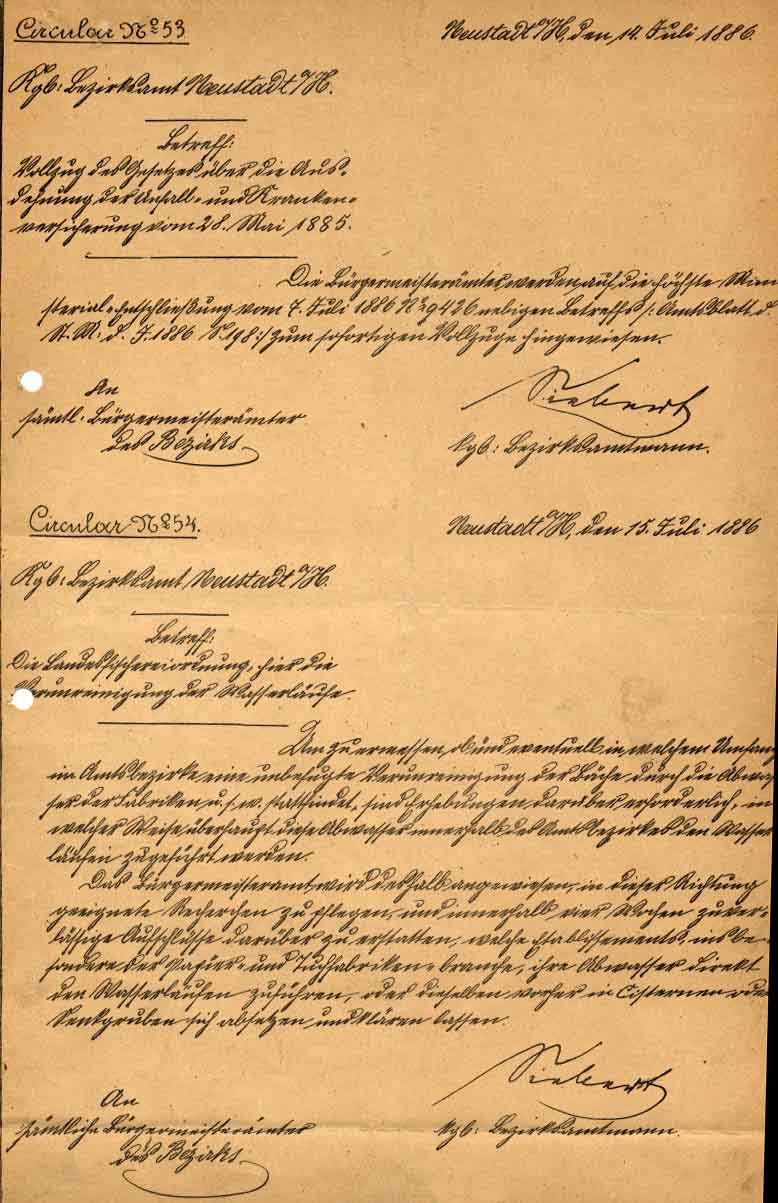 Circular No 53
Neustadt a/H, den 14. Juli 1886.
Kgb: Bezirksamt Neustadt a/H.
Betreff:
Vollzug des Gesetzes über die Aus-
dehnung der Unfall- und Kranken-
versicherung vom 28. Mai 1885.
Die Bürgermeisterämter werden auf die höchste Mini
sterial-Entschließung vom 7. Juli 1886 No 9426 nebigen Betreffs /: Amtsblatt d.
St. M. d. J. 1886 S. 198 :/ zum sofortigen Vollzuge hingewiesen.
An
sämtl. Bürgermeisterämter
des Bezirks
Siebert
kgb: Bezirksamtmann.
Circular No 54.
Neustadt a/H, den 15. Juli 1886
Kgb: Bezirksamt Neustadt a/H.
Betreff:
Die Landesfischereiordnung, hier die
Verunreinigung der Wasserläufe.
Um zu ermessen, ob und eventuell in welchem Umfang
im Amtsbezirke eine unbefugte Verunreinigung der Bäche durch die Abwas
ser der Fabriken u. s. w. stattfindet, sind Erhebungen darüber erforderlich, in
welcher Weise überhaupt diese Abwasser innerhalb des Amtsbezirkes den Wasser
läufen zugeführt werden.
Das Bürgermeisteramt wird deshalb angewiesen, in dieser Richtung
geeignete Recherchen zu pflegen, und innerhalb vier Wochen zuver-
lässige Aufschlüsse darüber zu erstatten, welche Etablissements, insbe-
sondere der Papier- und Tuchfabriken-branche, ihre Abwasser direkt
den Wasserläufen zuführen, oder dieselben vorher in Cisternen oder
Senkgruben sich absetzen und klären lassen.
An
sämtliche Bürgermeisterämter
des Bezirks
Siebert
kgb: Bezirksamtmann.